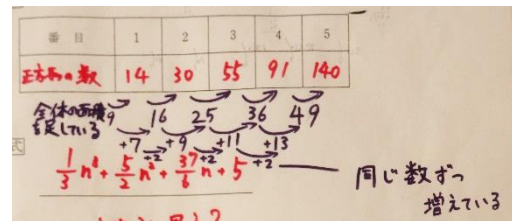 番 目 1 2 3 4 5
正方形の数 14 30 55 91 140
全体の面積 9 16 25 36 49
を足している +7 +9 +11 +13
式 +2 +2 +2
1/3 n³ + 5/2 n² + 37/6 n + 5 同じ数ずつ
増えている